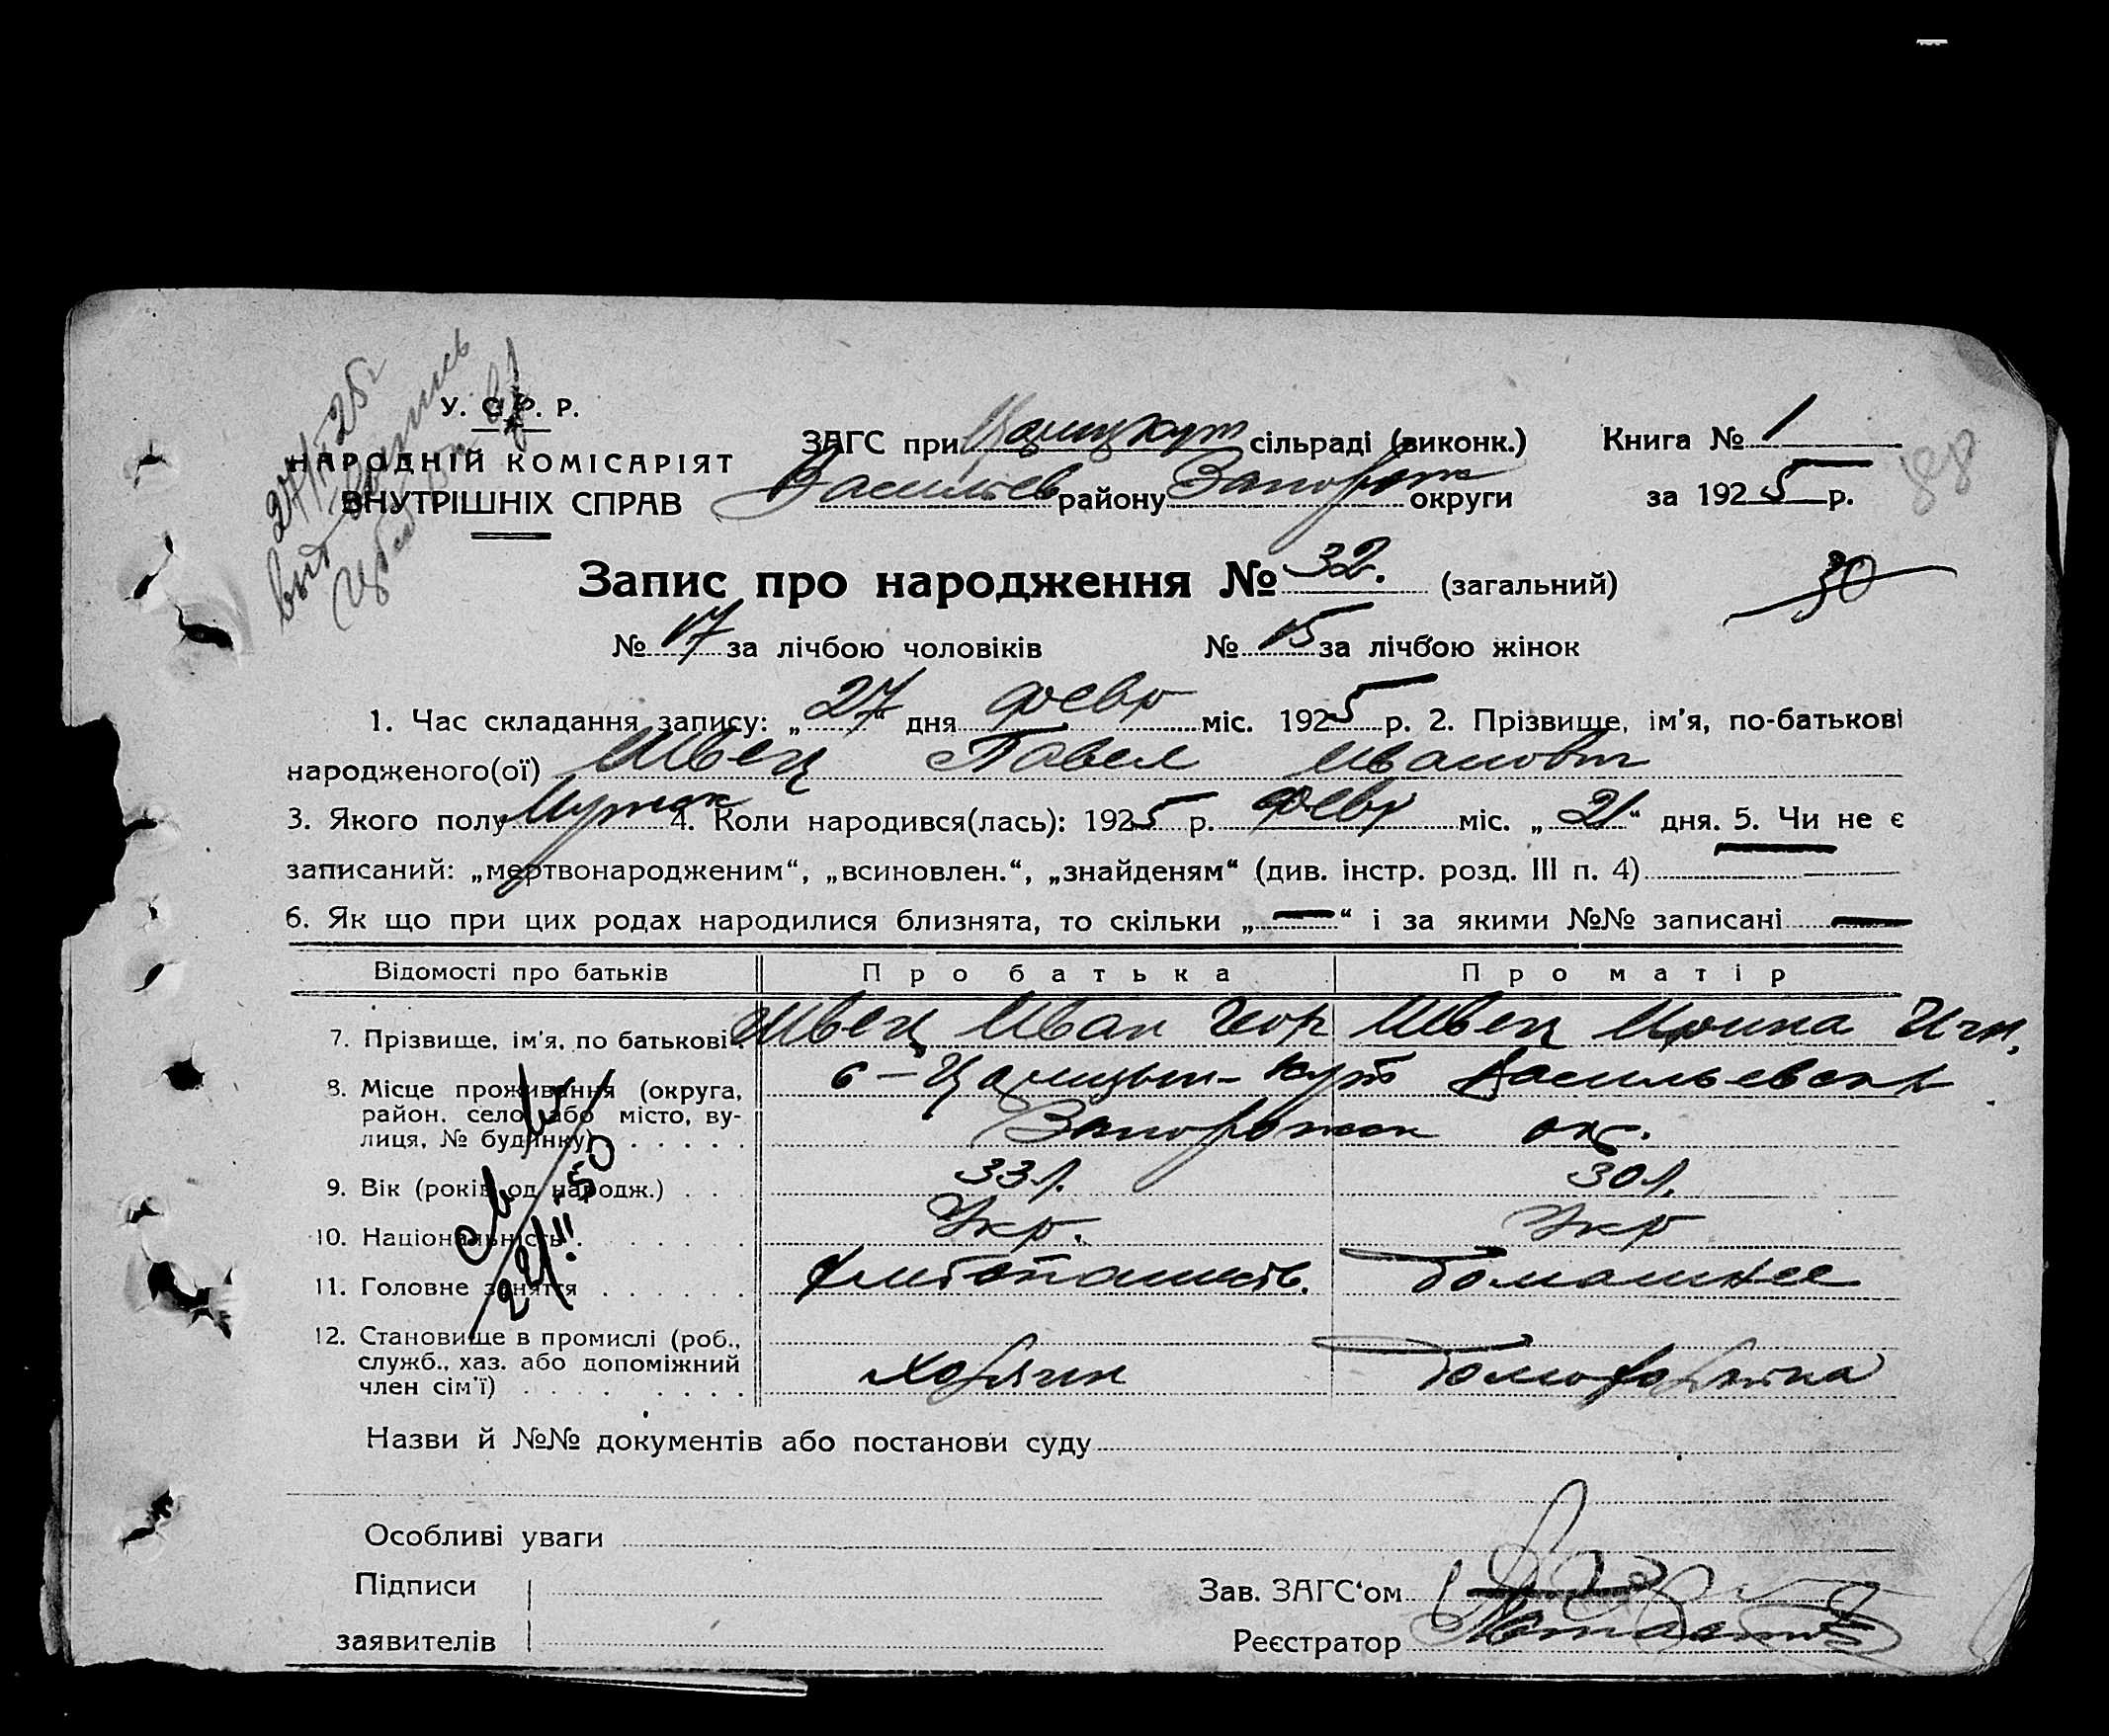 У. С. Р. Р.
НАРОДНІЙ КОМІСАРІЯТ
ВНУТРІШНІХ СПРАВ
27/II 25г
ЗАГС при Царицкут сільраді (виконк.) Книга № 1
Васильев району Запорож округи за 1925 р.
88
Запис про народження № 32. (загальний)
30
№ 17 за лічбою чоловіків № 15 за лічбою жінок
1. Час складання запису: „27“ дня февр міс. 1925 р. 2. Прізвище, ім'я, по-батькові
народженого(ої) Швец Павел Иванович
3. Якого полу Мужск 4. Коли народився(лась): 1925 р. февр міс. „21“ дня. 5. Чи не є
записаний: „мертвонародженим“, „всиновлен.“, „знайденям“ (див. інстр. розд. III п. 4)
6. Як що при цих родах народилися близнята, то скільки „—“ і за якими №№ записані —
Відомості про батьків Про батька Про матір
7. Прізвище, ім'я, по батькові Швец Иван Геор Швец Ирина Игн.
8. Місце проживання (округа, с-Царицын-Кут Васильевск
район, село або місто, ву-
лиця, № будинку) Запорожск окр.
9. Вік (років од народж.) 33 л. 30 л.
10. Національність Укр. Укр
11. Головне заняття Хлебопашеств. Домашнее
12. Становище в промислі (роб.,
служб., хаз. або допоміжний Хозяин Домохозяйка
член сім'ї)
Назви й №№ документів або постанови суду
Особливі уваги
Підписи
заявителів
Зав. ЗАГС'ом
Реєстратор